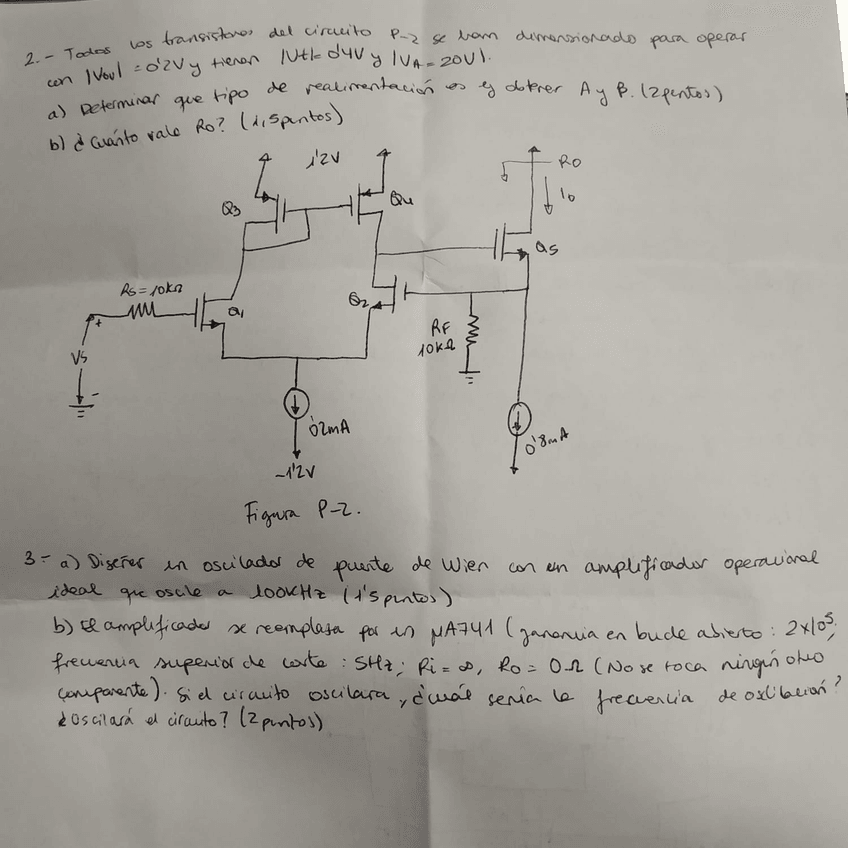 2.- Todos los transistores del circuito P-2 se han dimensionado para operar
con |Vov| = 0'2V y tienen |Vt|= 0'4V y |VA = 20V|.
a) Determinar que tipo de realimentación es y obtener A y β. (2 puntos)
b) ¿Cuánto vale Ro? (1,5 puntos)
1'2V
Ro
Io
Q3
Q4
Q5
Rs = 10kΩ
Q1
Q2
+
Vs
-
RF
10kΩ
0'2mA
0'8mA
-1'2V
Figura P-2.
3.- a) Diseñar un oscilador de puente de Wien con un amplificador operacional
ideal que oscile a 100kHz (1'5 puntos)
b) El amplificador se reemplaza por un μA741 (ganancia en bucle abierto: 2x10⁵;
frecuencia superior de corte: 5Hz; Ri = ∞, Ro = 0Ω (No se toca ningún otro
componente). Si el circuito oscilara, ¿cuál sería la frecuencia de oscilación?
¿Oscilará el circuito? (2 puntos)